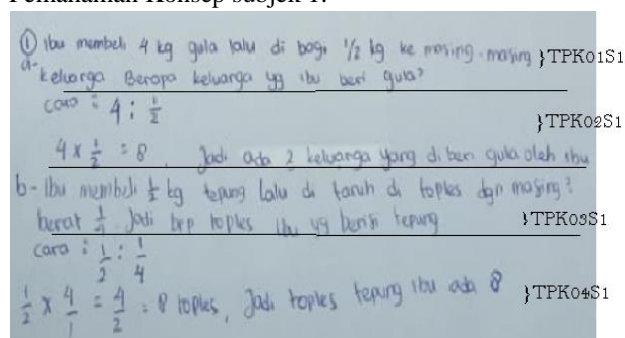 Pemahaman Konsep subjek 1:
① Ibu membeli 4 kg gula lalu di bagi 1/2 kg ke masing-masing }TPK01S1
a- keluarga Berapa keluarga yg ibu beri gula?
cara : 4 : 1/2 }TPK02S1
4 x 1/2 = 8 Jadi ada 2 keluarga yang di beri gula oleh ibu
b- Ibu membeli 1/2 kg tepung lalu di taruh di toples dgn masing2
berat 1/4. Jadi brp toples ibu yg berisi tepung }TPK03S1
cara : 1/2 : 1/4
1/2 x 4/1 = 4/2 = 8 toples, Jadi toples tepung ibu ada 8 }TPK04S1